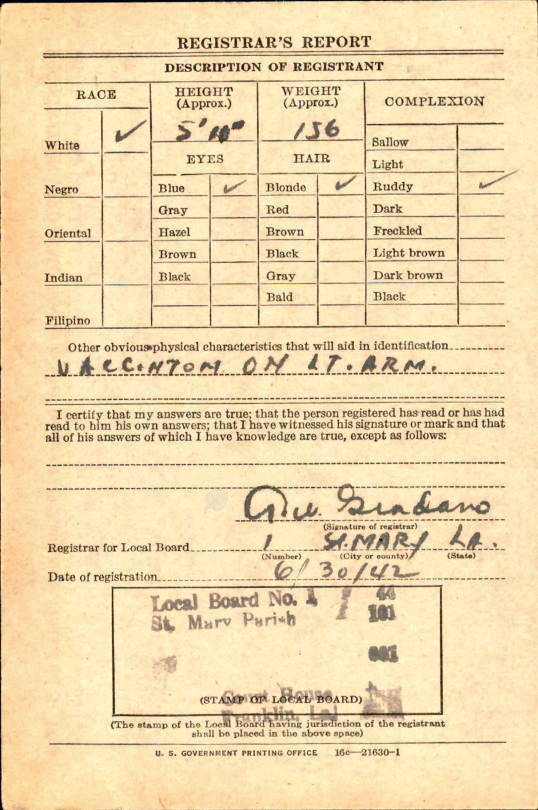 REGISTRAR'S REPORT
DESCRIPTION OF REGISTRANT
RACE
HEIGHT
(Approx.)
WEIGHT
(Approx.)
COMPLEXION
5' 10"
156
White ✓
Sallow
EYES
HAIR
Light
Negro
Blue ✓
Blonde ✓
Ruddy ✓
Gray
Red
Dark
Oriental
Hazel
Brown
Freckled
Brown
Black
Light brown
Indian
Black
Gray
Dark brown
Bald
Black
Filipino
Other obvious physical characteristics that will aid in identification
VACCINTOM ON LT. ARM.
I certify that my answers are true; that the person registered has read or has had
read to him his own answers; that I have witnessed his signature or mark and that
all of his answers of which I have knowledge are true, except as follows:
(Signature of registrar)
Registrar for Local Board 1 St. MARY LA.
(Number) (City or county) (State)
Date of registration 6/30/42
Local Board No. 1 44
St. Mary Parish 101
001
Court House
(STAMP OF LOCAL BOARD)
Franklin, La.
(The stamp of the Local Board having jurisdiction of the registrant
shall be placed in the above space)
U. S. GOVERNMENT PRINTING OFFICE 16c—21630-1